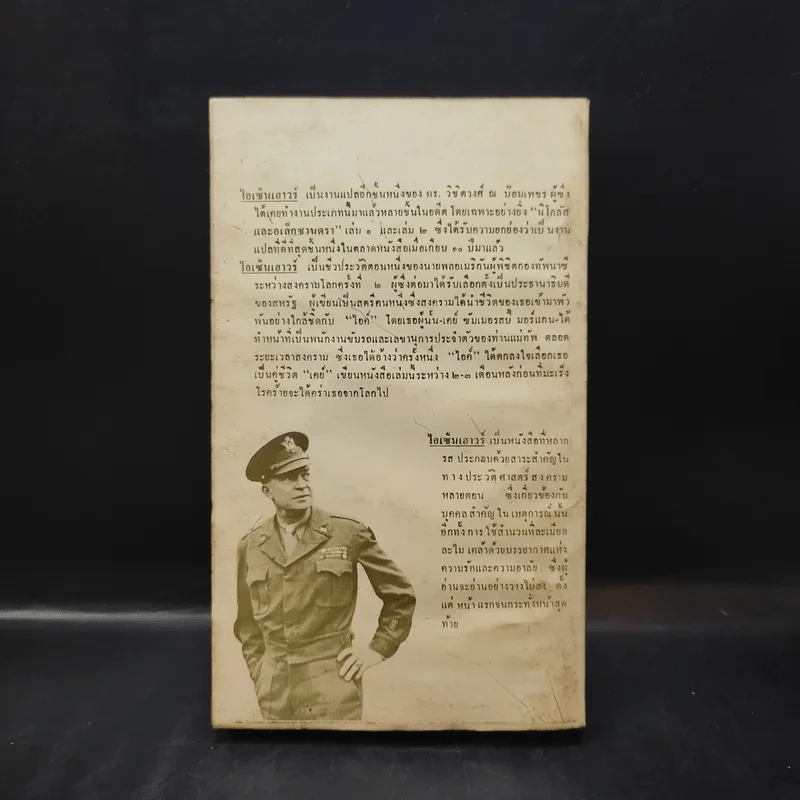 ไอเซ็นเฮาวร์ เป็นงานแปลอีกชิ้นหนึ่งของ ดร. วิชิตวงศ์ ณ ป้อมเพชร ผู้ซึ่ง
ได้เคยทำงานประเภทนี้มาแล้วหลายชิ้นในอดีต โดยเฉพาะอย่างยิ่ง "นิโคลัส
และอเล็กซานดรา" เล่ม ๑ และเล่ม ๒ ซึ่งได้รับความยกย่องว่าเป็นงาน
แปลที่ดีที่สุดชิ้นหนึ่งในตลาดหนังสือเมื่อเกือบ ๑๐ ปีมาแล้ว
ไอเซ็นเฮาวร์ เป็นชีวประวัติตอนหนึ่งของนายพลอเมริกันผู้พิชิตกองทัพนาซี
ระหว่างสงครามโลกครั้งที่ ๒ ผู้ซึ่งต่อมาได้รับเลือกตั้งเป็นประธานาธิบดี
ของสหรัฐ ผู้เขียนเป็นสตรีคนหนึ่งซึ่งสงครามได้นำชีวิตของเธอเข้ามาพัว
พันอย่างใกล้ชิดกับ "ไอค์" โดยเธอผู้นั้น-เคย์ ซัมเมอรสบี มอร์แกน-ได้
ทำหน้าที่เป็นพนักงานขับรถและเลขานุการประจำตัวของท่านแม่ทัพ ตลอด
ระยะเวลาสงคราม ซึ่งเธอได้อ้างว่าครั้งหนึ่ง "ไอค์" ได้ตกลงใจเลือกเธอ
เป็นคู่ชีวิต "เคย์" เขียนหนังสือเล่มนี้ระหว่าง ๒-๓ เดือนหลังก่อนที่มะเร็ง
โรคร้ายจะได้คร่าเธอจากโลกไป
ไอเซ็นเฮาวร์ เป็นหนังสือที่หลาก
รส ประกอบด้วยสาระสำคัญใน
ทางประวัติศาสตร์สงคราม
หลายตอน ซึ่งเกี่ยวข้องกับ
บุคคลสำคัญในเหตุการณ์นั้น
อีกทั้งการใช้สำนวนที่ละเมียด
ละไม เคล้าด้วยบรรยากาศแห่ง
ความรักและความอาลัย ซึ่งผู้
อ่านจะอ่านอย่างวางไม่ลง ตั้ง
แต่หน้าแรกจนกระทั่งหน้าสุด
ท้าย